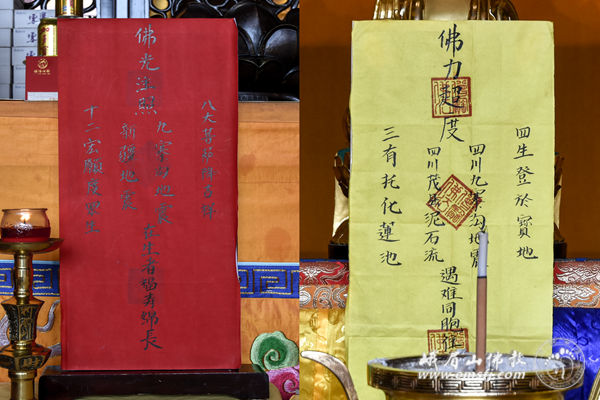 佛光注照
八大菩萨降吉祥
九寨沟地震
新疆地震
存生者福寿綿長
十二宏願度眾生
佛力超度
四生登於寶地
四川九寨沟地震
四川茂县泥石流
遇难同胞往
三有托化蓮池
峨眉山佛教
www.emsfj.com